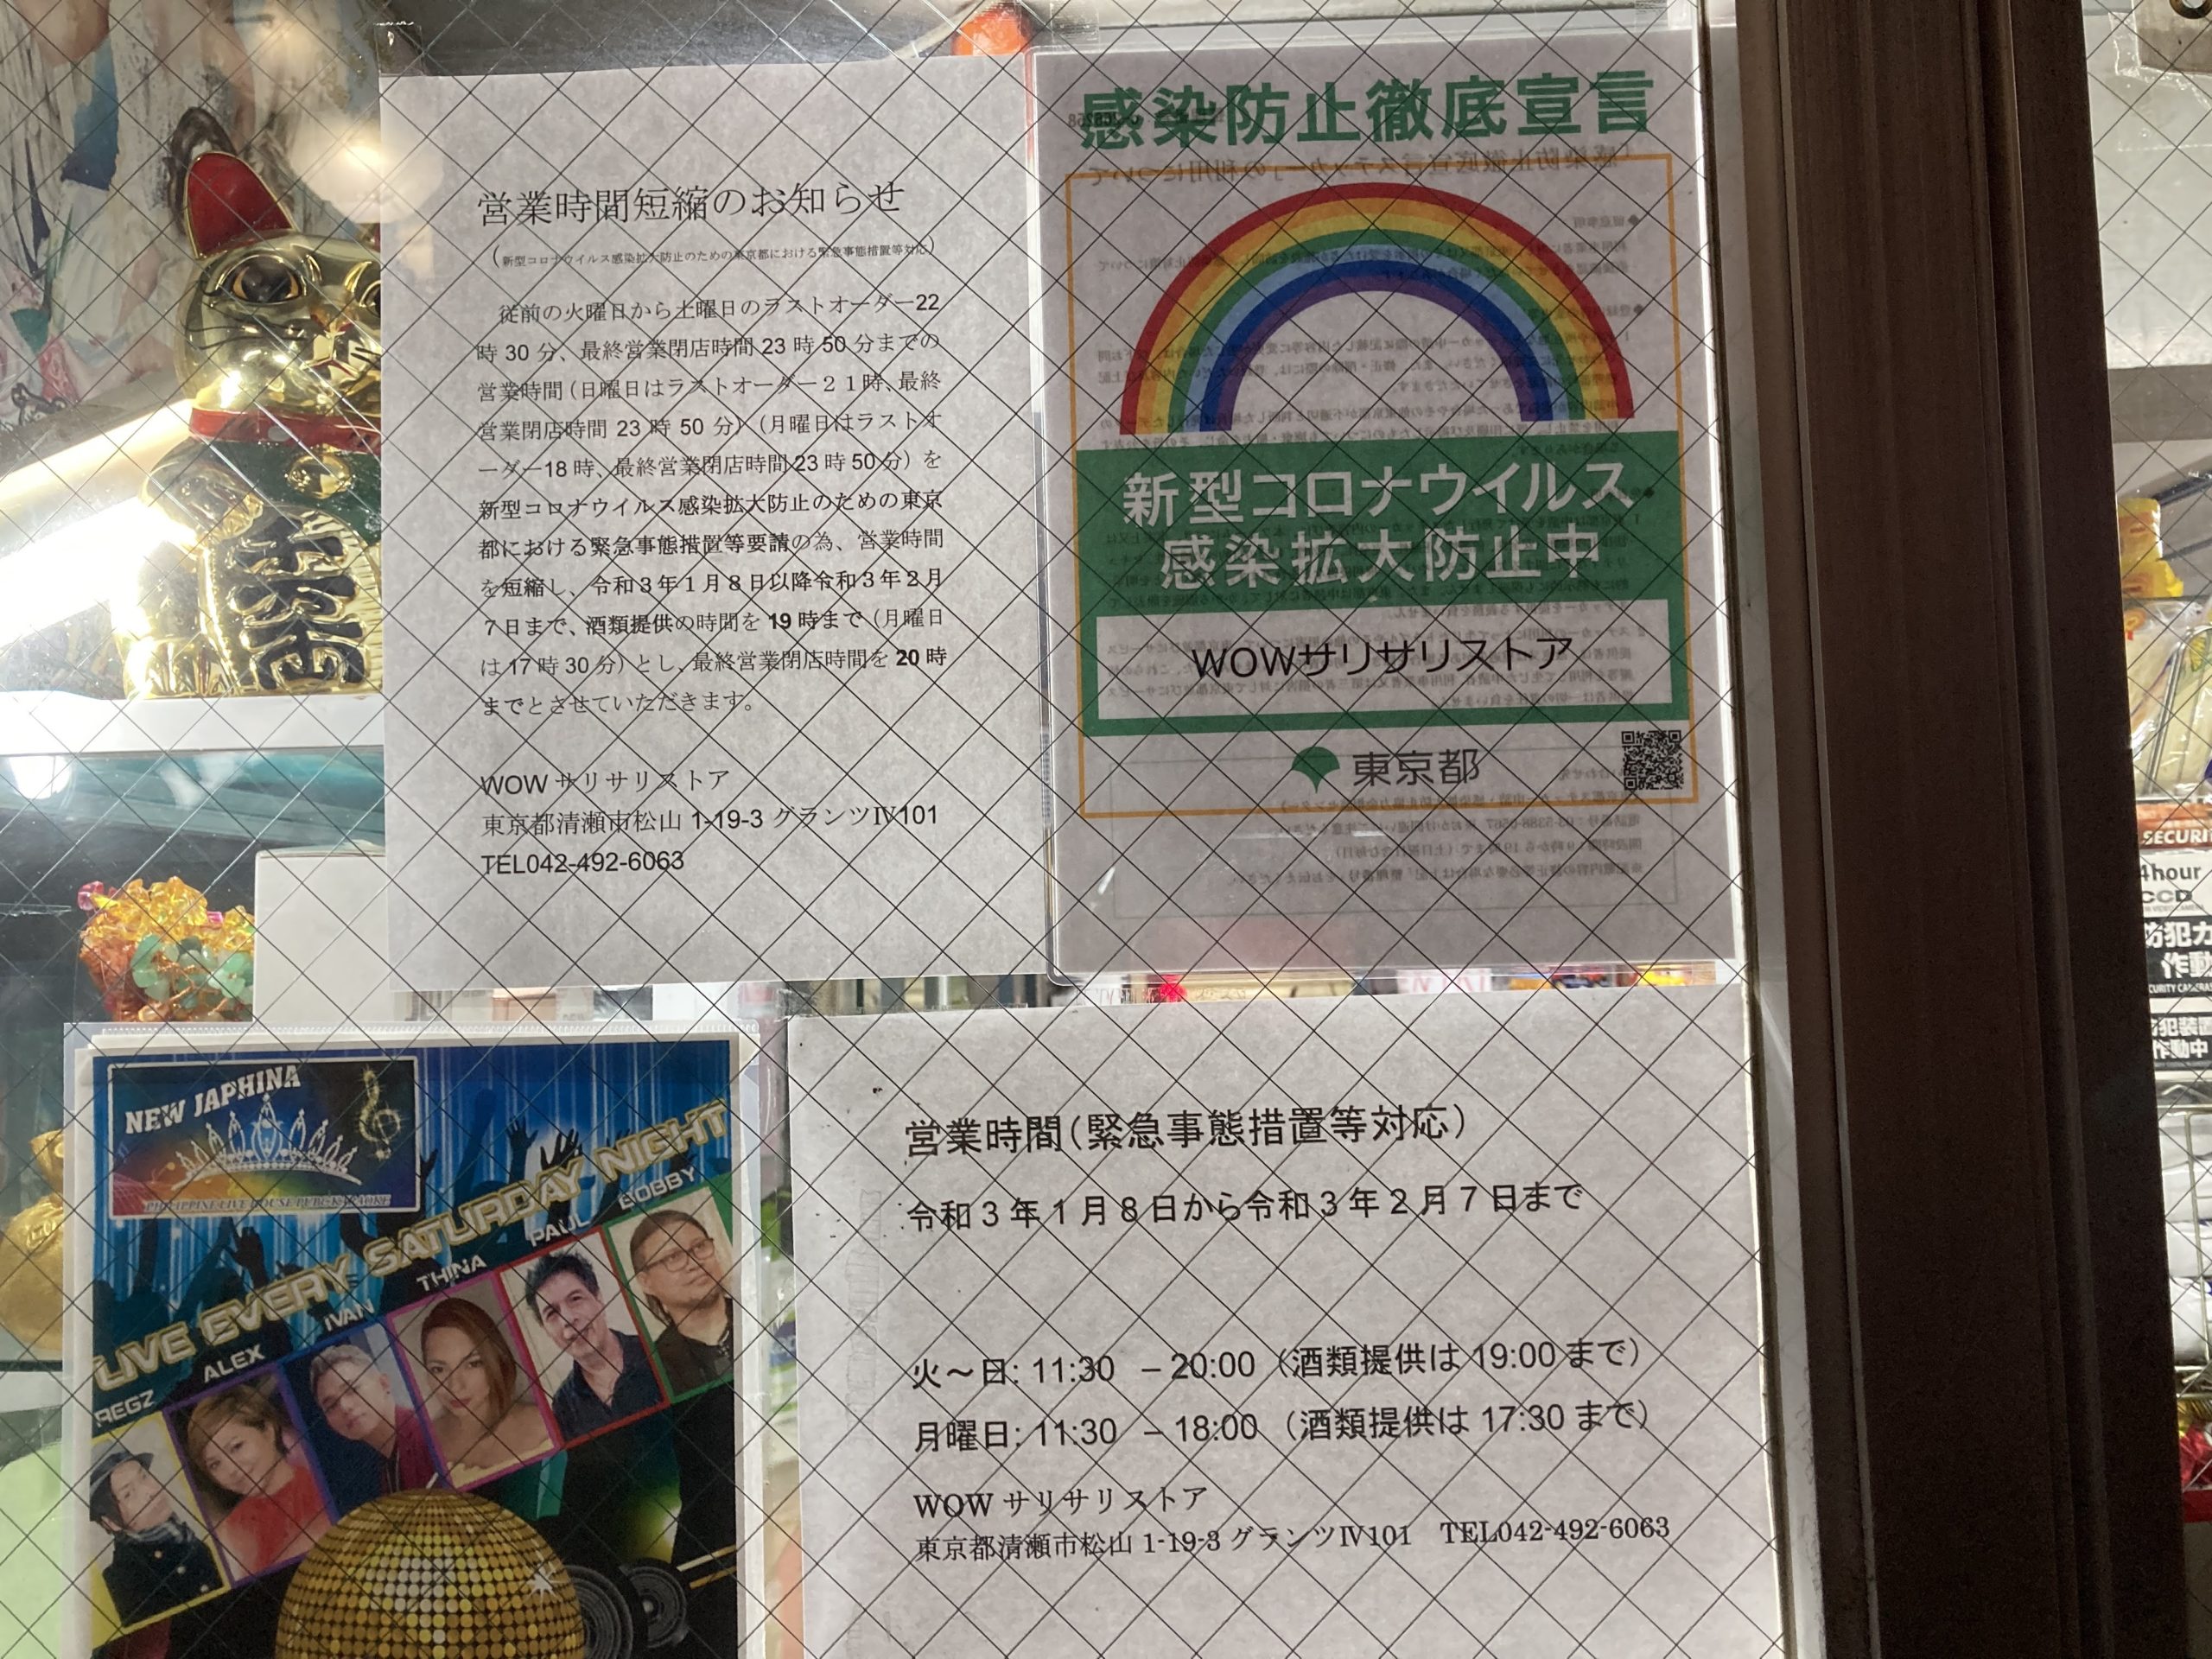 営業時間短縮のお知らせ
（新型コロナウイルス感染拡大防止のための東京都における緊急事態措置等対応）
従前の火曜日から土曜日のラストオーダー22
時 30 分、最終営業閉店時間 23 時 50 分までの
営業時間（日曜日はラストオーダー２１時、最終
営業閉店時間 23 時 50 分）（月曜日はラストオ
ーダー18 時、最終営業閉店時間 23 時 50 分）を
新型コロナウイルス感染拡大防止のための東京
都における緊急事態措置等要請の為、営業時間
を短縮し、令和３年１月８日以降令和３年２月
７日まで、酒類提供の時間を 19 時まで（月曜日
は 17 時 30 分）とし、最終営業閉店時間を 20 時
までとさせていただきます。
WOW サリサリストア
東京都清瀬市松山 1-19-3 グランツⅣ101
TEL042-492-6063
感染防止徹底宣言
新型コロナウイルス
感染拡大防止中
WOWサリサリストア
東京都
NEW JAPHINA
PHILIPPINE LIVE HOUSE PUB & KARAOKE
LIVE EVERY SATURDAY NIGHT
REGZ
ALEX
IVAN
THINA
PAUL
BOBBY
営業時間（緊急事態措置等対応）
令和３年１月８日から令和３年２月７日まで
火～日: 11:30 －20:00（酒類提供は 19:00 まで）
月曜日: 11:30 －18:00（酒類提供は 17:30 まで）
WOW サリサリストア
東京都清瀬市松山 1-19-3 グランツⅣ101 TEL042-492-6063
SECURI
4hour
CCD
防犯カ
作動
犯装置
作動中